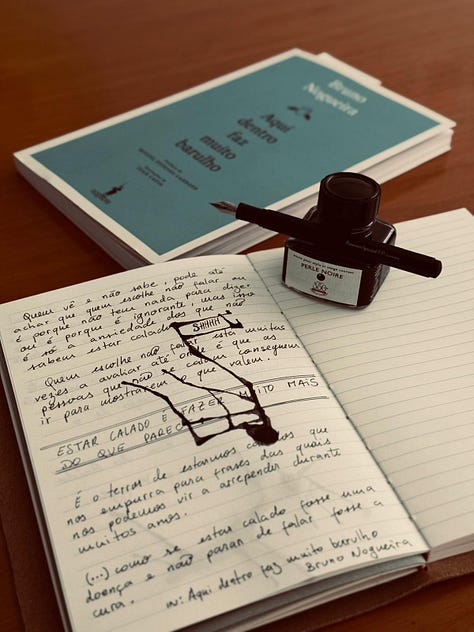 Bruno
Nogueira
Aqui
dentro
faz
muito
barulho
PERLE NOIRE
Quem vê e não sabe, pode até
achar que quem escolhe não falar ou
é porque não tem nada para dizer
ou é porque é ignorante, mas isso
é só a ansiedade dos que não
sabem estar calados.
SHHHH
Quem escolhe não falar está muitas
vezes a avaliar até onde é que as
pessoas que não se calam conseguem
ir para mostrarem o que valem.
ESTAR CALADO É FAZER MUITO MAIS
DO QUE PARECE
É o terror de estarmos calados que
nos empurra para frases das quais
nos podemos vir a arrepender durante
muitos anos.
(...) como se estar calado fosse uma
doença e não parar de falar fosse a
cura.
in: Aqui dentro faz muito barulho
Bruno Nogueira